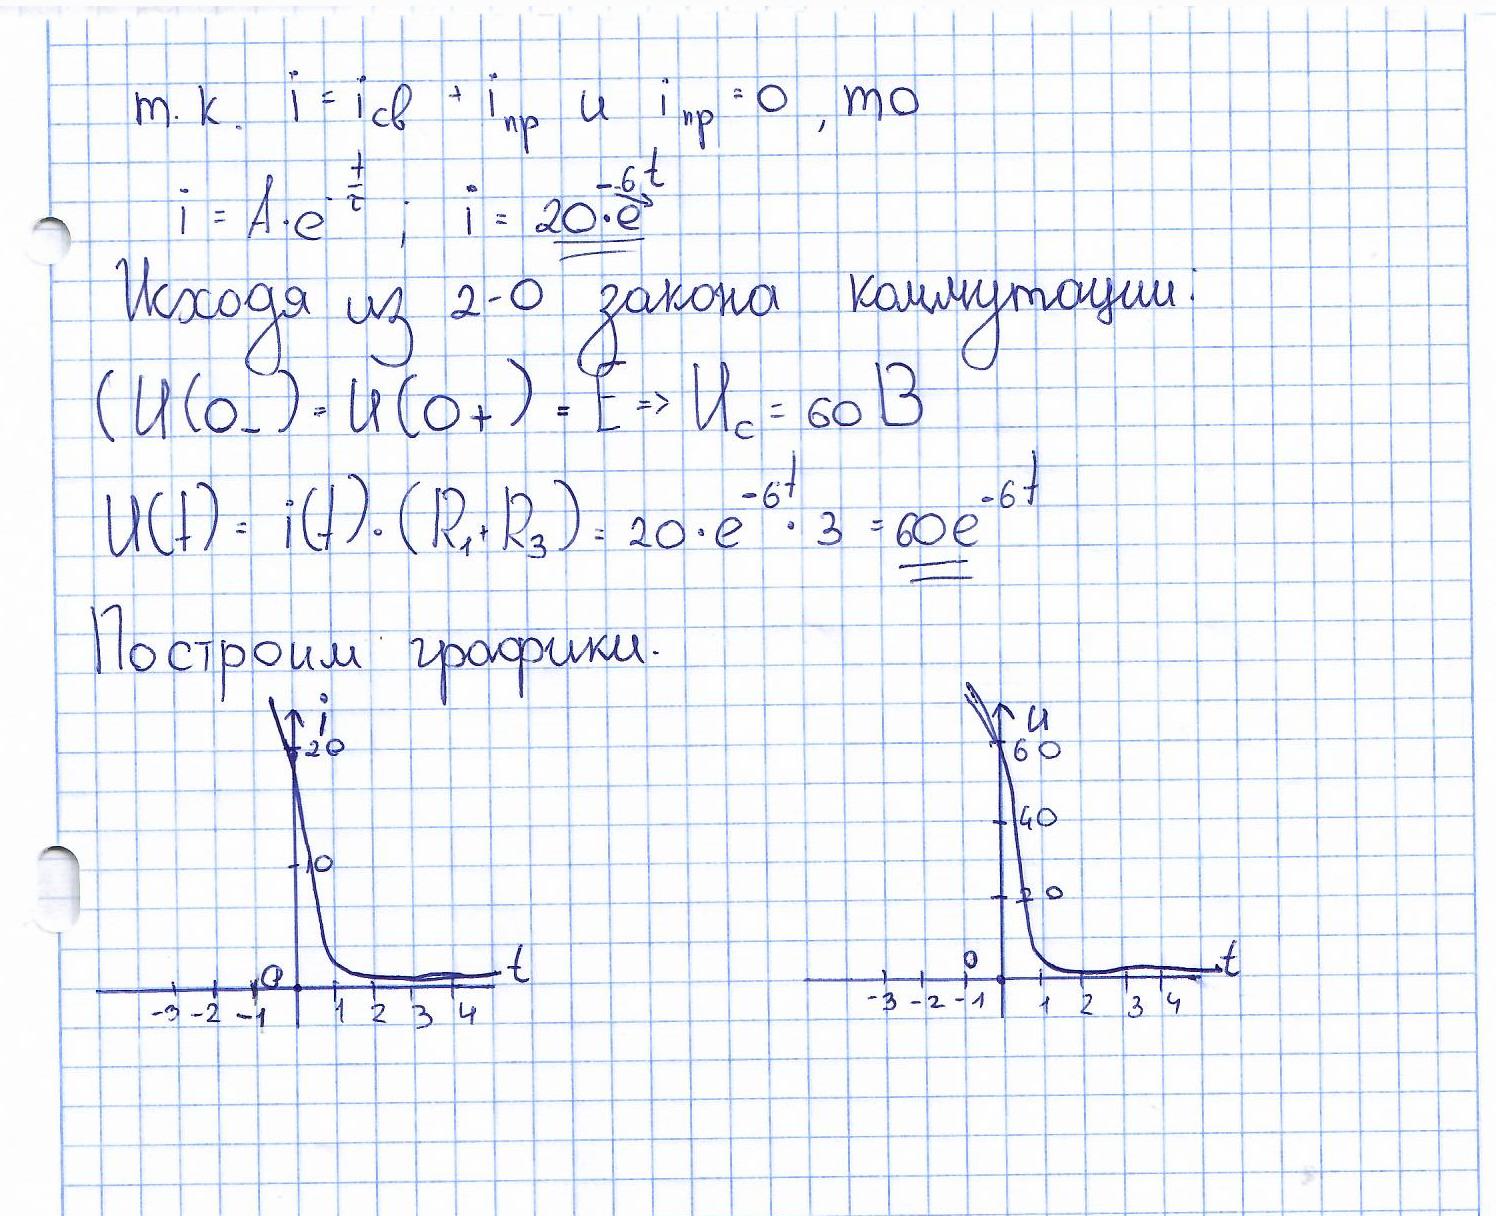 т. к. i = iсв + iпр и iпр = 0, то
i = A·e^-t/τ ; i = 20·e^-6t
Исходя из 2-о закона коммутации:
(U(0-) = U(0+) = E => Uc = 60 В
U(t) = i(t)·(R1+R3) = 20·e^-6t · 3 = 60e^-6t
Построим графики.
i
20
10
0
t
-3 -2 -1 1 2 3 4
u
60
40
20
0
t
-3 -2 -1 1 2 3 4